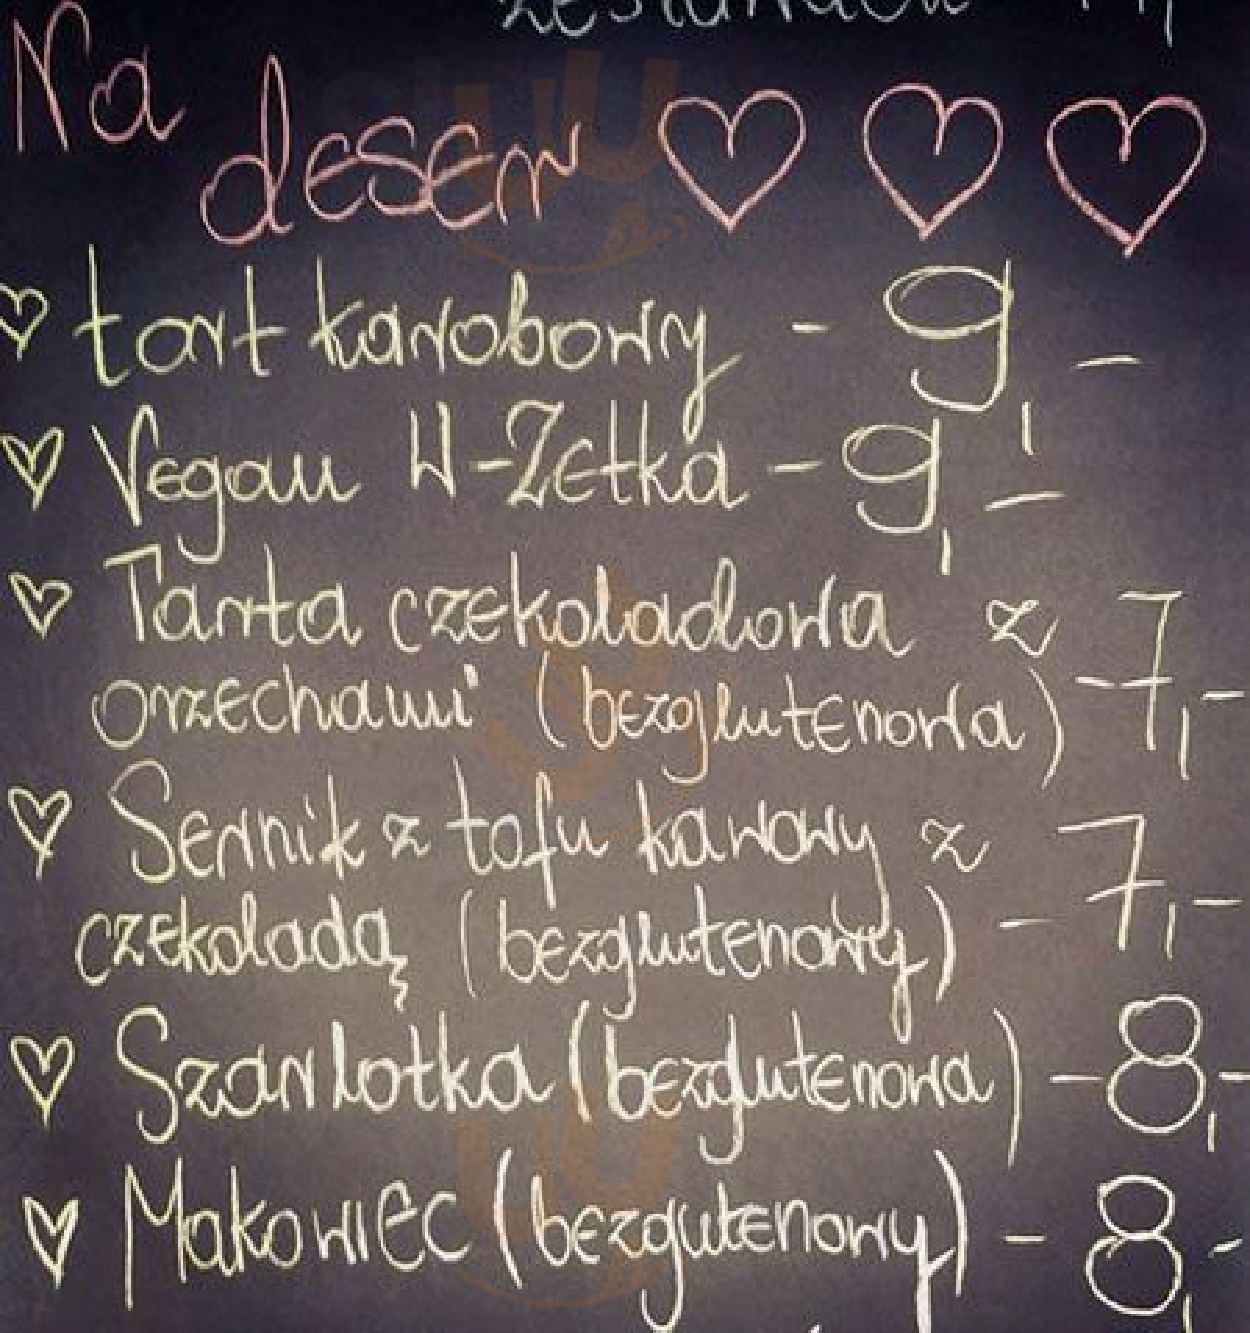 Na
deser
tort karobowy - 9,-
Vegan W-Zetka - 9,-
Tarta czekoladowa z
orzechami (bezglutenowa) - 7,-
Sernik z tofu kawowy z
czekoladą (bezglutenowy) - 7,-
Szarlotka (bezglutenowa) - 8,-
Makowiec (bezgutenowy) - 8,-